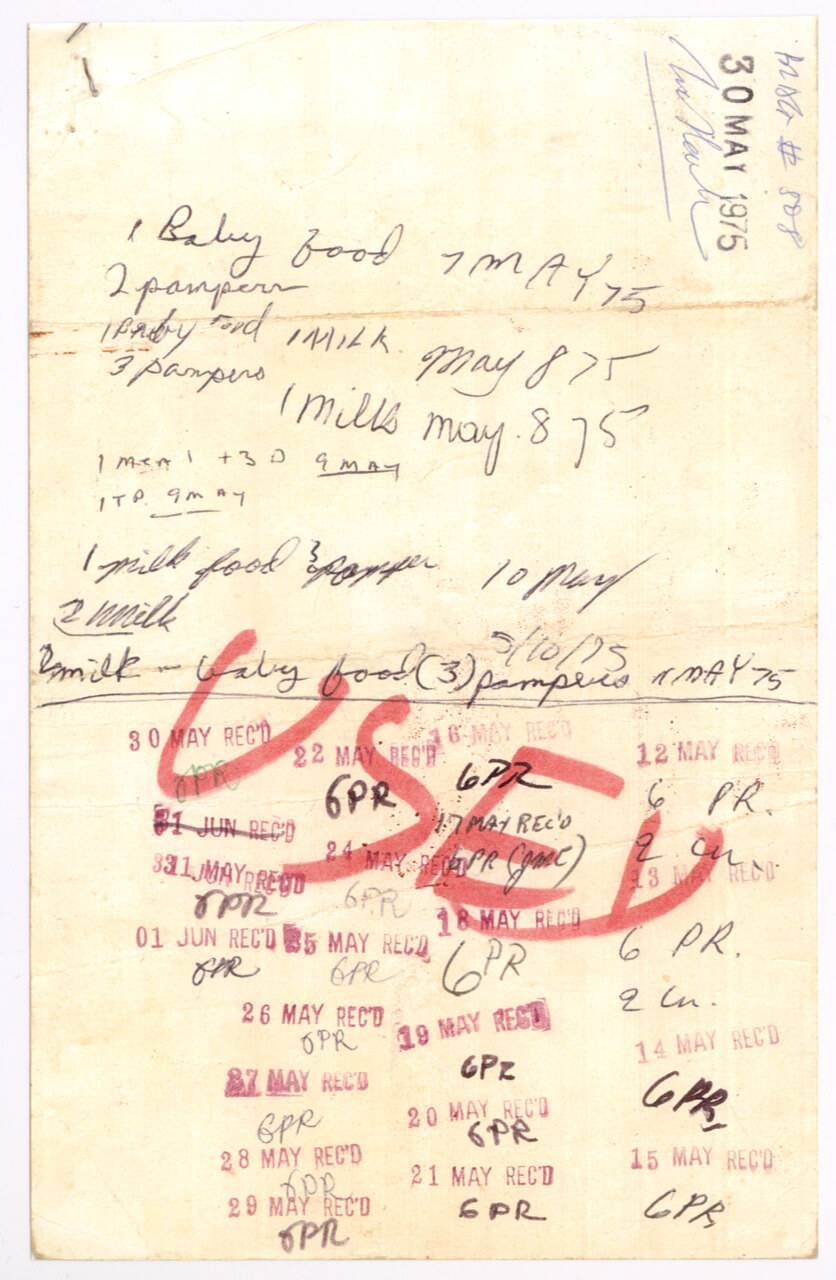 30 MAY 1975
1 Baby food 7 MAY 75
2 pampers
1 Baby Food 1 MILK May 8 75
3 pampers
1 Milk May. 8 75
1 meal +3 D 9 MAY
1 TP. 9 MAY
1 milk food 3 pamper 10 May
2 milk
5/10/75
2 milk – baby food (3) pampers 11 MAY 75
USED
30 MAY REC'D
6PR
31 JUN REC'D
31 MAY REC'D
6PR
01 JUN REC'D
6PR
22 MAY REC'D
6PR
24 MAY REC'D
6PR
25 MAY REC'D
6PR
26 MAY REC'D
6PR
27 MAY REC'D
6PR
28 MAY REC'D
6PR
29 MAY REC'D
6PR
16 MAY REC'D
6PR
17 MAY REC'D
6PR (JMC)
18 MAY REC'D
6PR
19 MAY REC'D
6PR
20 MAY REC'D
6PR
21 MAY REC'D
6PR
12 MAY REC'D
6 PR.
2 Cn.
13 MAY REC'D
6 PR.
2 Cn.
14 MAY REC'D
6PR
15 MAY REC'D
6PR